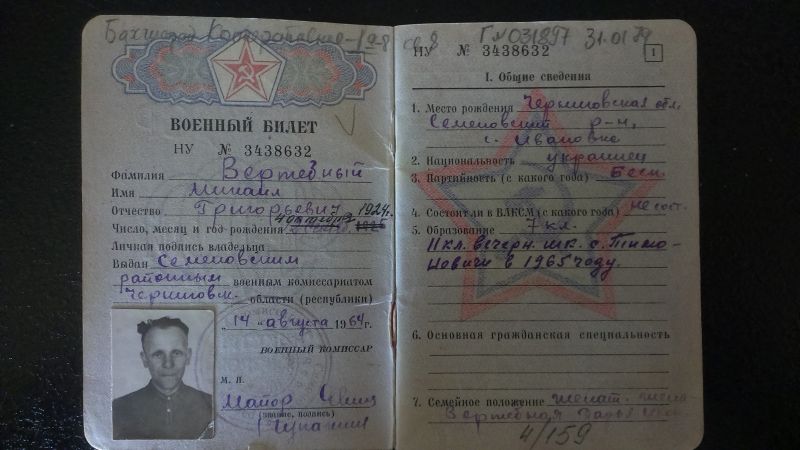 ВОЕННЫЙ БИЛЕТ
НУ № 3438632
Фамилия Вертебный
Имя Михаил
Отчество Григорьевич
4 октября 1924.
Число, месяц и год рождения
Личная подпись владельца
Выдан Семеновским
районным военным комиссариатом
Чернигов. области (республики)
"14" августа 1964 г.
ВОЕННЫЙ КОМИССАР
М. П.
Майор
(звание, подпись)
Гл 031897 31.01.79
НУ № 3438632
1
I. Общие сведения
1. Место рождения Черниговская обл,
Семеновский р-н,
с. Ивановка
2. Национальность украинец
3. Партийность (с какого года) Бесп.
4. Состоял ли в ВЛКСМ (с какого года) не сост.
5. Образование 7 кл.
11 кл. вечерн. шк. с. Тимо-
новичи в 1965 году.
6. Основная гражданская специальность
7. Семейное положение женат. жена
Вертебная Дарья
4/159